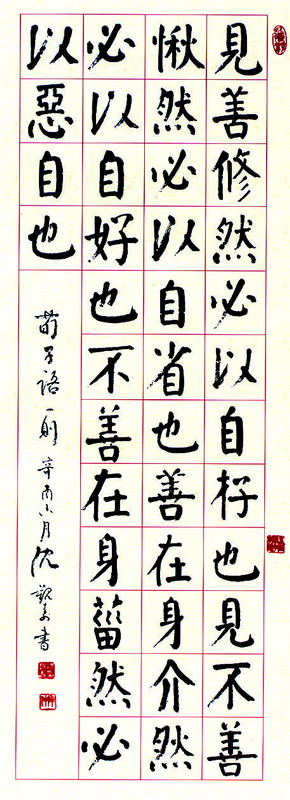 見善修然必以自存也見不善
愀然必以自省也善在身介然
必以自好也不善在身菑然必
以惡自也
荀子語一則 辛酉 月 沈覲壽書